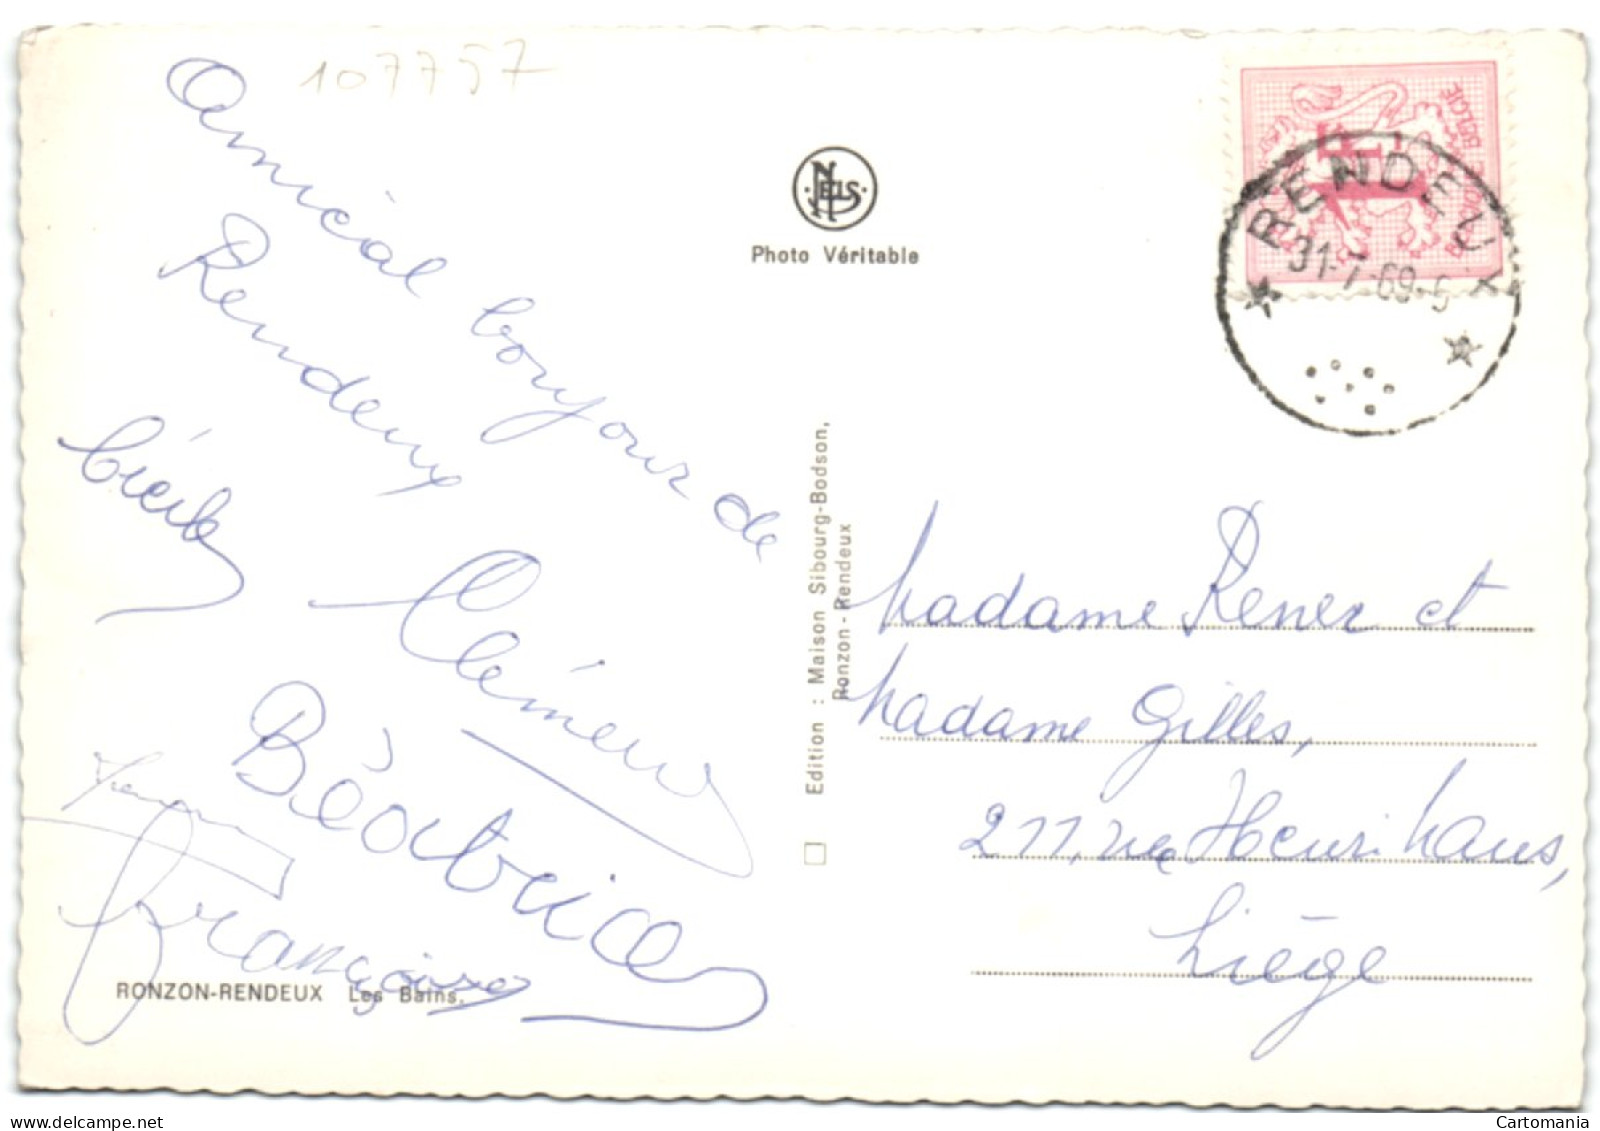 107757
Amical bonjour de
Rendeux
Cécile
Clément
Béatrice
Françoise
RONZON-RENDEUX Les Bains.
NELS
Photo Véritable
Edition : Maison Sibourg-Bodson,
Ronzon-Rendeux
BELGIE
1F
RENDEUX
31-7-69-5
Madame Rener et
Madame Gilles,
211, rue Henri Maus,
Liège
www.delcampe.net
Cartomania